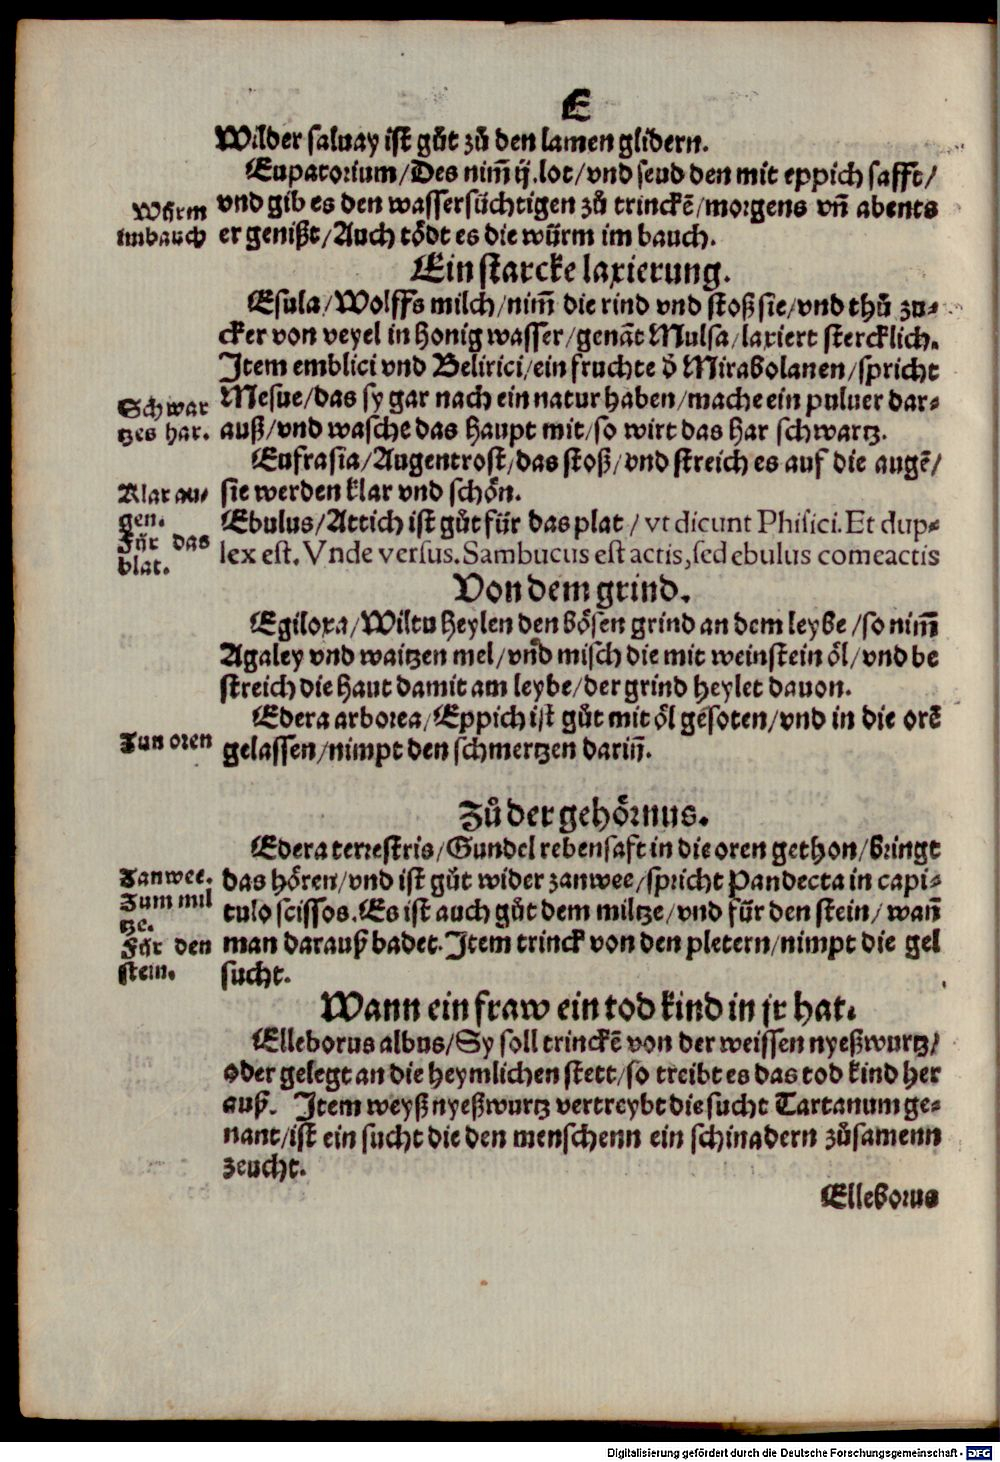 E
Wilder saluay ist gůt zů den lamen glidern.
Eupatorium/Des nim̃ ij.lot/vnd seud den mit eppich safft/
Würm
imbauch
vnd gib es den wassersüchtigen zů trinckẽ/morgens vñ abents
er genißt/Auch tödt es die würm im bauch.
Ein starcke laxierung.
Esula/Wolffs milch/nim̃ die rind vnd stoß sie/vnd thů zu-
cker von veyel in honig wasser/genãt Mulsa/laxiert stercklich.
Item emblici vnd Belirici/ein fruchte d̕ Mirabolanen/spricht
Schwar
tzes har.
Mesue/das sy gar nach ein natur haben/mache ein puluer dar-
auß/vnd wasche das haupt mit/so wirt das har schwartz.
Eufrasia/Augentrost/das stoß/vnd streich es auf die augẽ/
Klar au-
gen.
sie werden klar vnd schön.
Für das
blat.
Ebulus/Attich ist gůt für das plat/vt dicunt Phisici.Et dup-
lex est. Vnde versus. Sambucus est actis, sed ebulus comeactis
Von dem grind.
Egiloxa/Wiltu heylen den bösen grind an dem leybe/so nim̃
Agaley vnd waitzen mel/vnd misch die mit weinstein öl/vnd be
streich die haut damit am leybe/der grind heylet dauon.
Edera arborea/Eppich ist gůt mit öl gesoten/vnd in die orẽ
Zun oren
gelassen/nimpt den schmertzen dariñ.
Zů der gehörnus.
Edera terrestris/Gundel rebensaft in die oren gethon/bringt
Zanwee.
Zum mil
tze.
Für den
stein.
das hören/vnd ist gůt wider zanwee/spricht Pandecta in capi-
tulo scissos.Es ist auch gůt dem miltze/vnd für den stein/wañ
man darauß badet.Item trinck von den pletern/nimpt die gel
sucht.
Wann ein fraw ein tod kind in jr hat.
Elleborus albus/Sy soll trinckẽ von der weissen nyeßwurtz/
oder gelegt an die heymlichen stett/so treibt es das tod kind her
auß. Item weyß nyeßwurtz vertreybt die sucht Tartanum ge-
nant/ist ein sucht die den menschenn ein schinadern zůsamenn
zeucht.
Elleborus
Digitalisierung gefördert durch die Deutsche Forschungsgemeinschaft - DFG